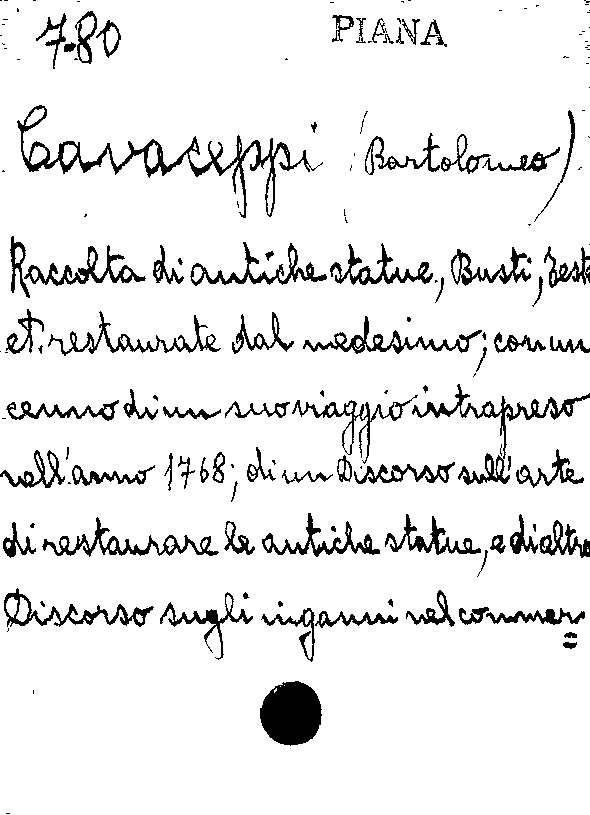 7-80
PIANA
Cavaceppi (Bartolomeo)
Raccolta di antiche statue, Busti, Test
et. restaurate dal medesimo; con un
cenno di un suo viaggio intrapreso
nell'anno 1768; di un Discorso sull'arte
di restaurare le antiche statue, e di altro
Discorso sugli inganni nel commer=